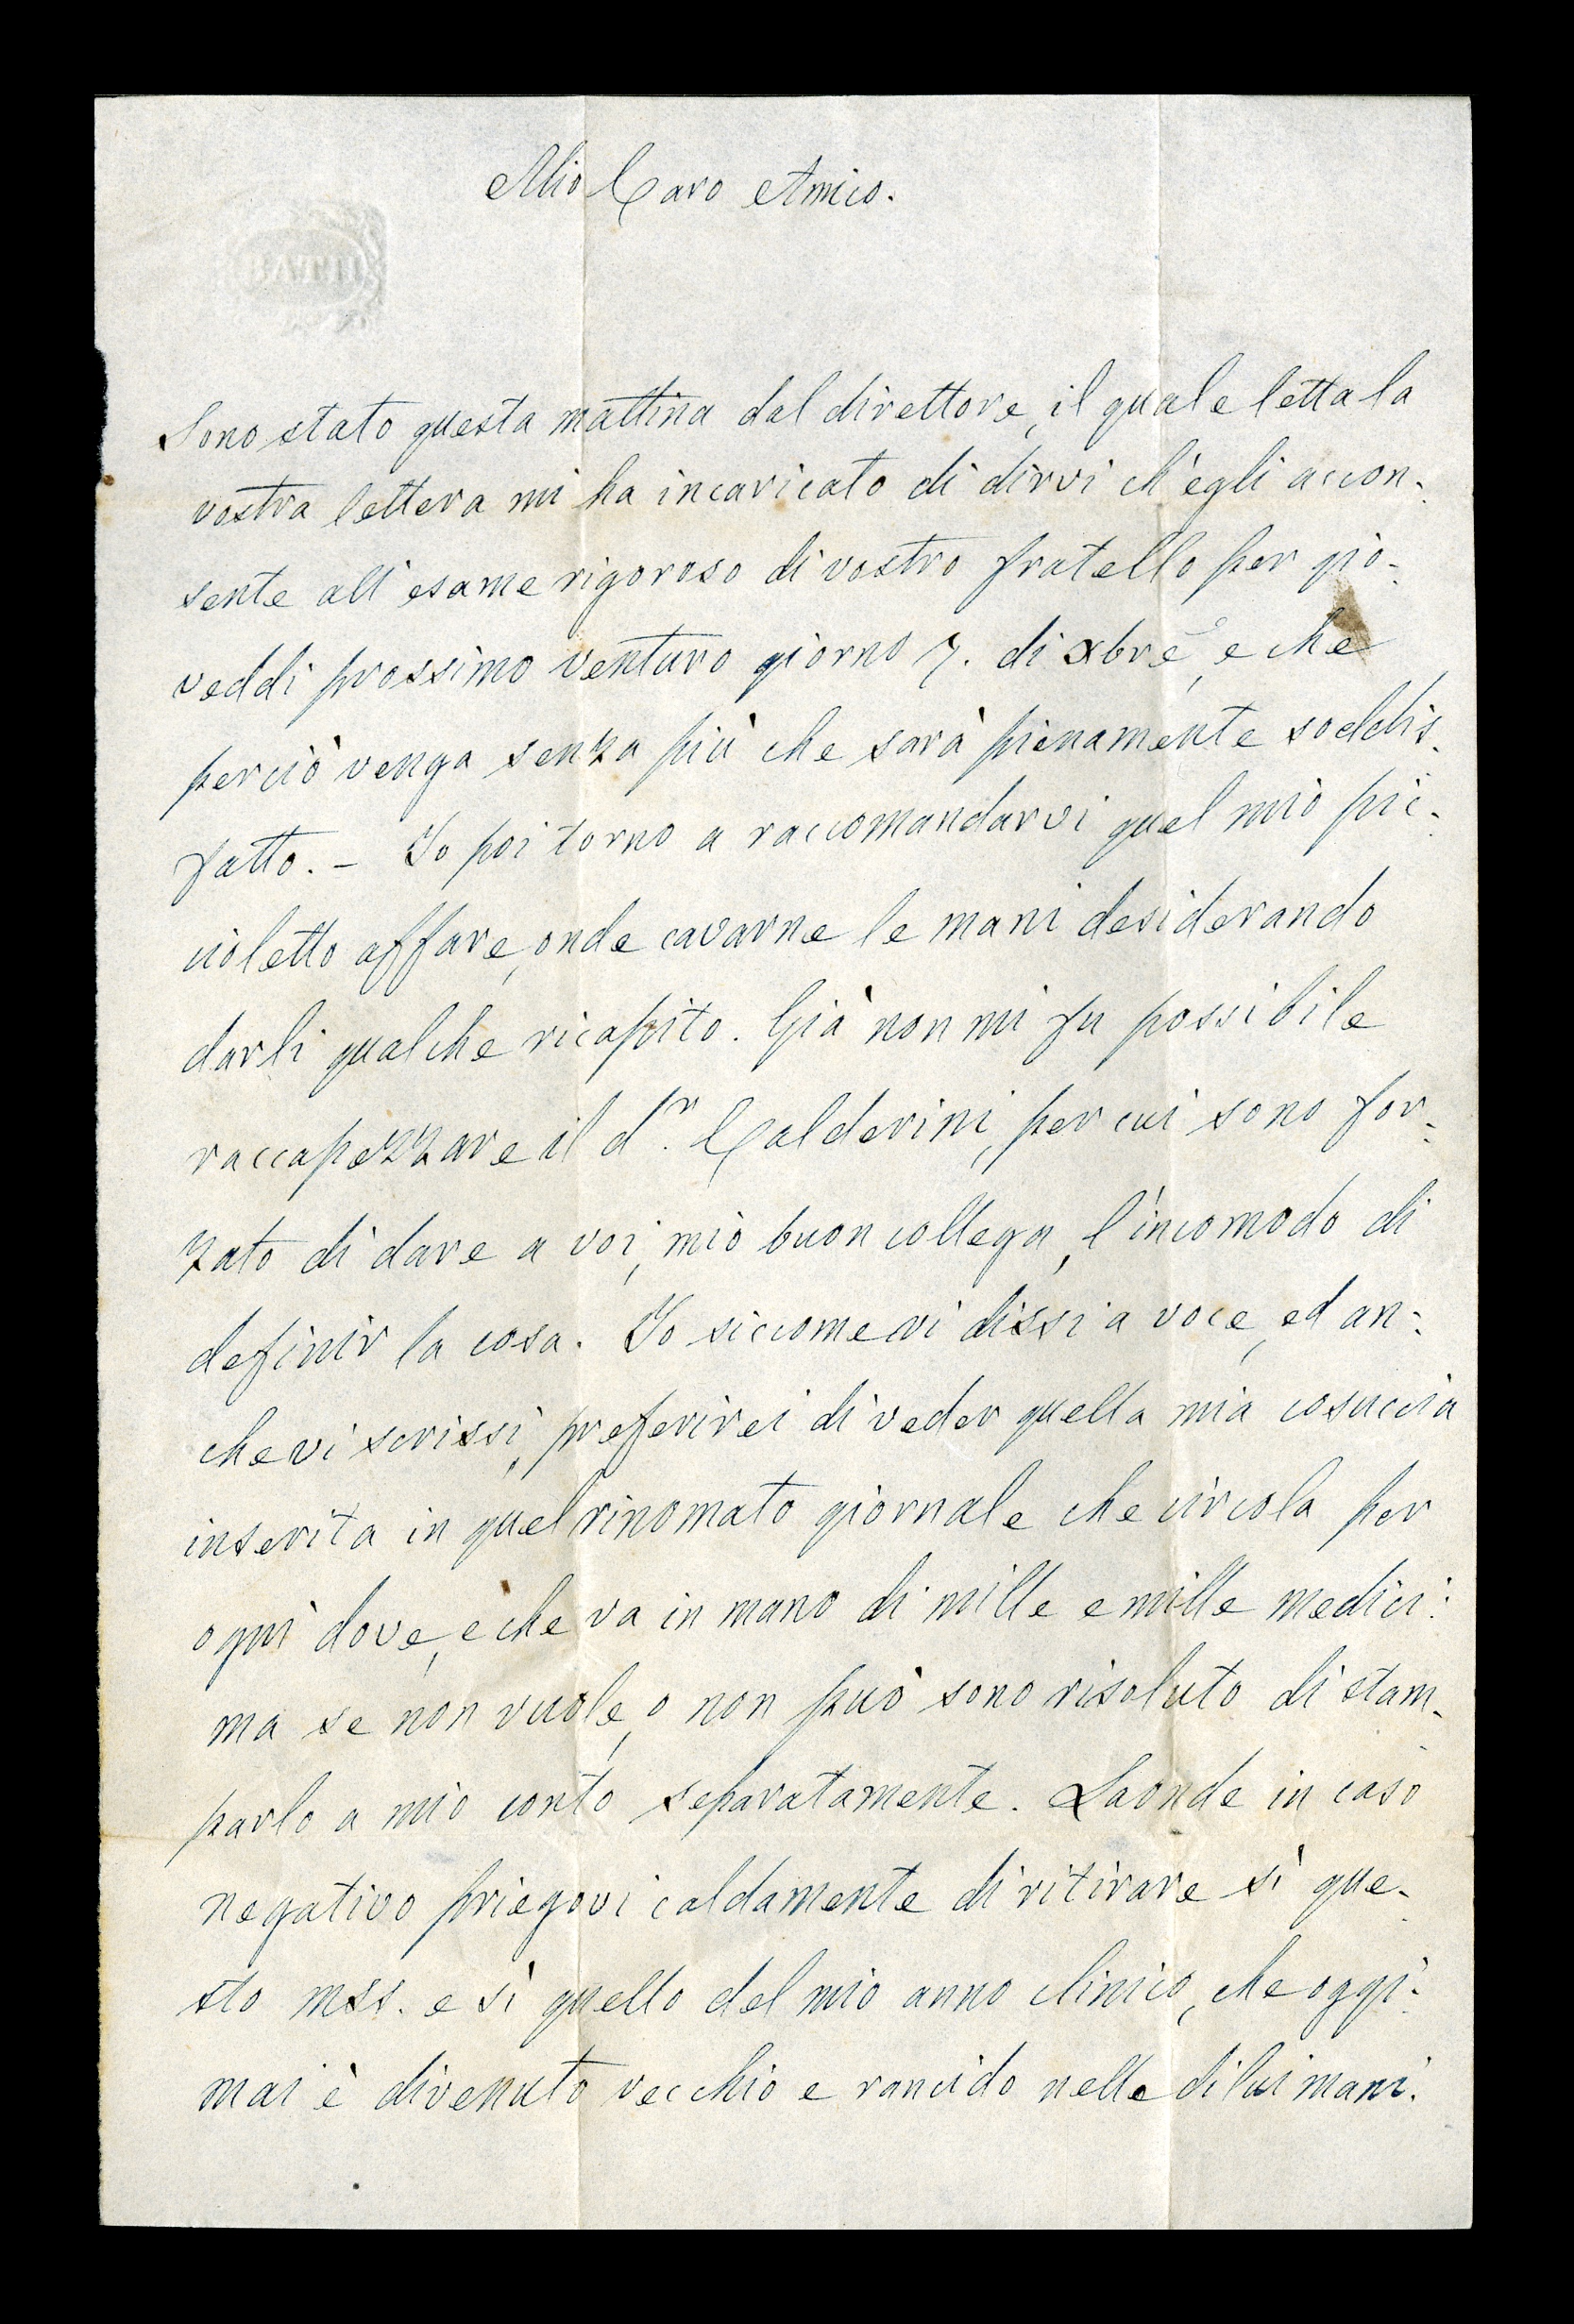 BATH
Mio Caro Amico.
Sono stato questa mattina dal direttore, il quale letta la
vostra lettera mi ha incaricato di dirvi ch'egli accon-
sente all'esame rigoroso di vostro fratello per gio-
veddi prossimo venturo giorno 7. di xbre, e che
perciò venga senza più che sarà pienamente soddis-
fatto. - Io poi torno a raccomandarvi quel mio pic-
cioletto affare, onde cavarne le mani desiderando
darli qualche ricapito. Già non mi fu possibile
raccapezzare il dr. Calderini, per cui sono for-
zato di dare a voi, mio buon collega, l'incomodo di
definir la cosa. Io siccome vi dissi a voce, ed an-
che vi scrissi, preferirei di veder quella mia cosuccia
inserita in quel rinomato giornale che circola per
ogni dove, e che va in mano di mille e mille medici:
ma se non vuole, o non può sono risoluto di stam-
parlo a mio conto separatamente. Laonde in caso
negativo priegovi caldamente di ritirare sì que-
sto mss. e sì quello del mio anno clinico, che oggi-
mai è divenuto vecchio e rancido nelle di lui mani.